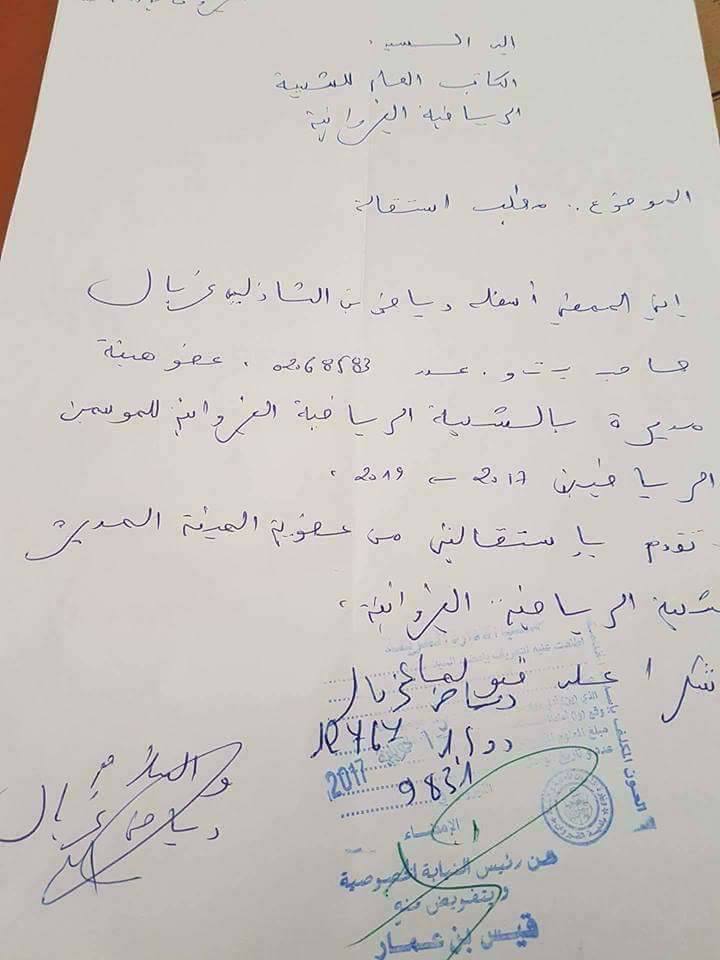 الى السيد.
الكاتب العام للشبيبة
الرياضية القيروانية
الموضوع.. مطلب استقالة
إني الممضي أسفله رياض بن الشاذلي غربال
صاحب ب ت و. عدد 02068583. عضو هيئة
مديرة بالشبيبة الرياضية القيروانية للموسمين
الرياضيين 2017 - 2019.
تقدم بإستقالتي من عضوية الهيئة المديرة
الرياضية القيروانية.
شكرا على قبولها
رياض غربال
والسلام
رياض غربال
2017
9831
العون المكلف
الإمضاء
عن رئيس النيابة الخصوصية
وبتفويض منه
قيس بن عمار